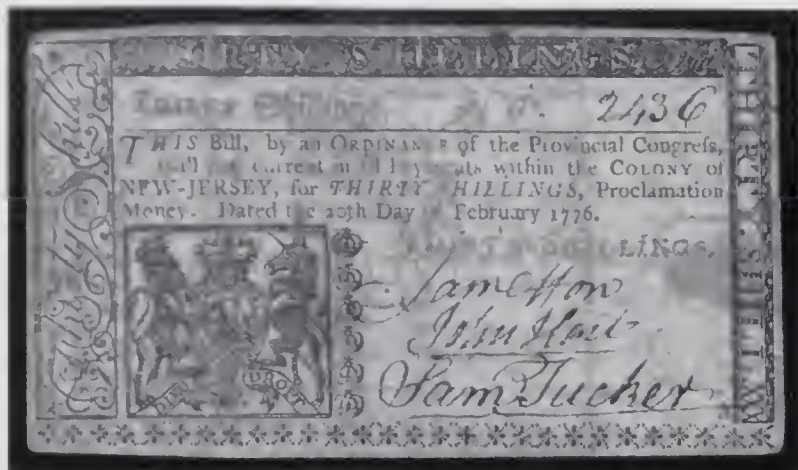 THIRTY SHILLINGS.
Thirty Shillings. No. 2436
THIS Bill, by an ORDINANCE of the Provincial Congreſs,
ſhall current in all Payments within the COLONY of
NEW-JERSEY, for THIRTY SHILLINGS, Proclamation
Money. Dated the 20th Day of February 1776.
THIRTY SHILLINGS.
Sam How
John Hart
Sam Tucker
DIEU DROIT
Thirty Shills